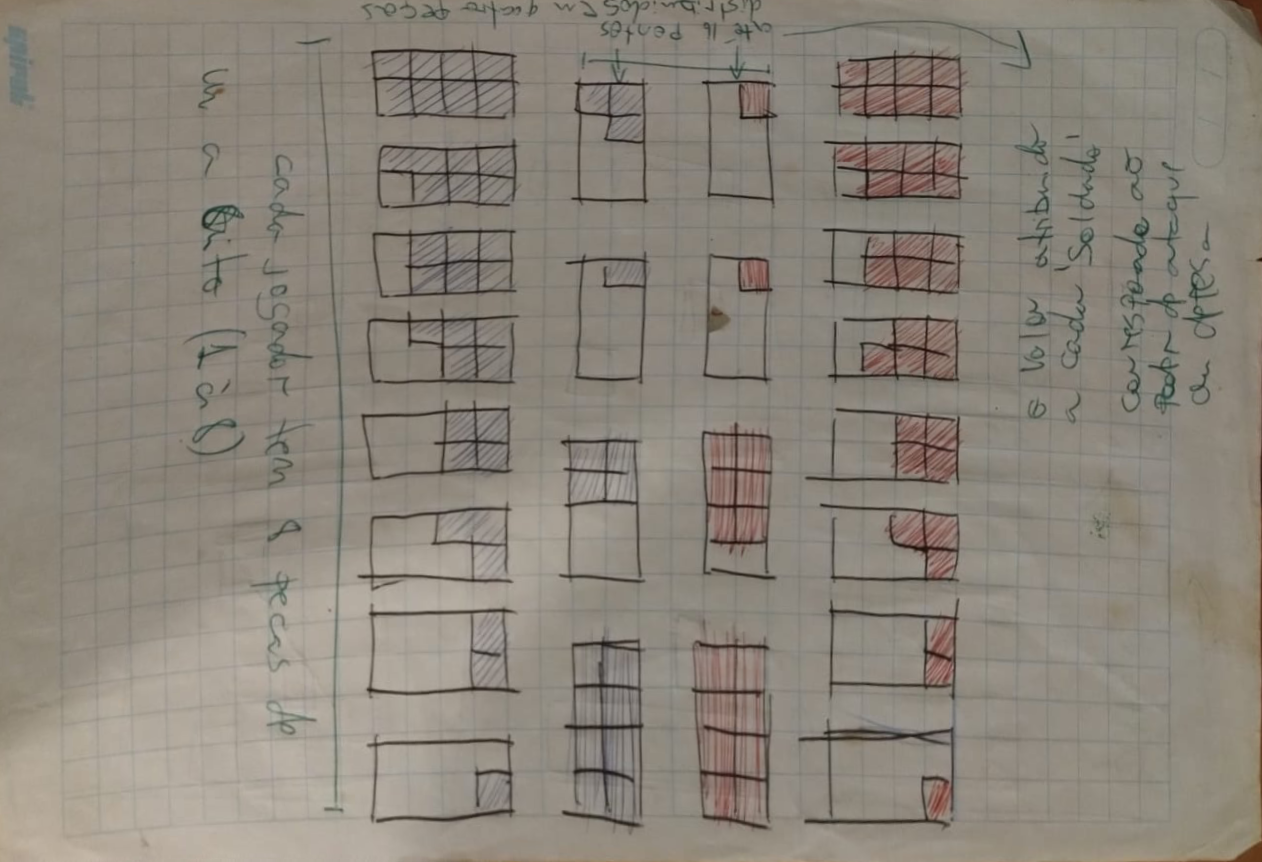 até 16 pontos
distribuídos em quatro peças
o valor atribuido
a cada 'Soldado'
corresponde ao
poder de ataque
ou defesa
cada jogador tem 8 peças de
um a oito (1 à 8)